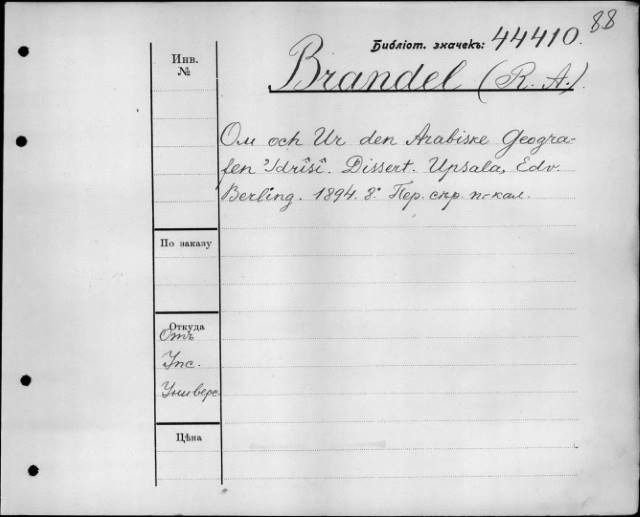 88
Библіот. значекъ: 44410.
Инв.
№
Brandel (R. A.).
Om och Ur den Arabiske Geogra-
fen 'Idrîsî. Dissert. Upsala, Edv.
Berling. 1894. 8°. Пер. скр. п-кал.
По наказу
Откуда
Отъ
Упс.
Универс.
Цѣна